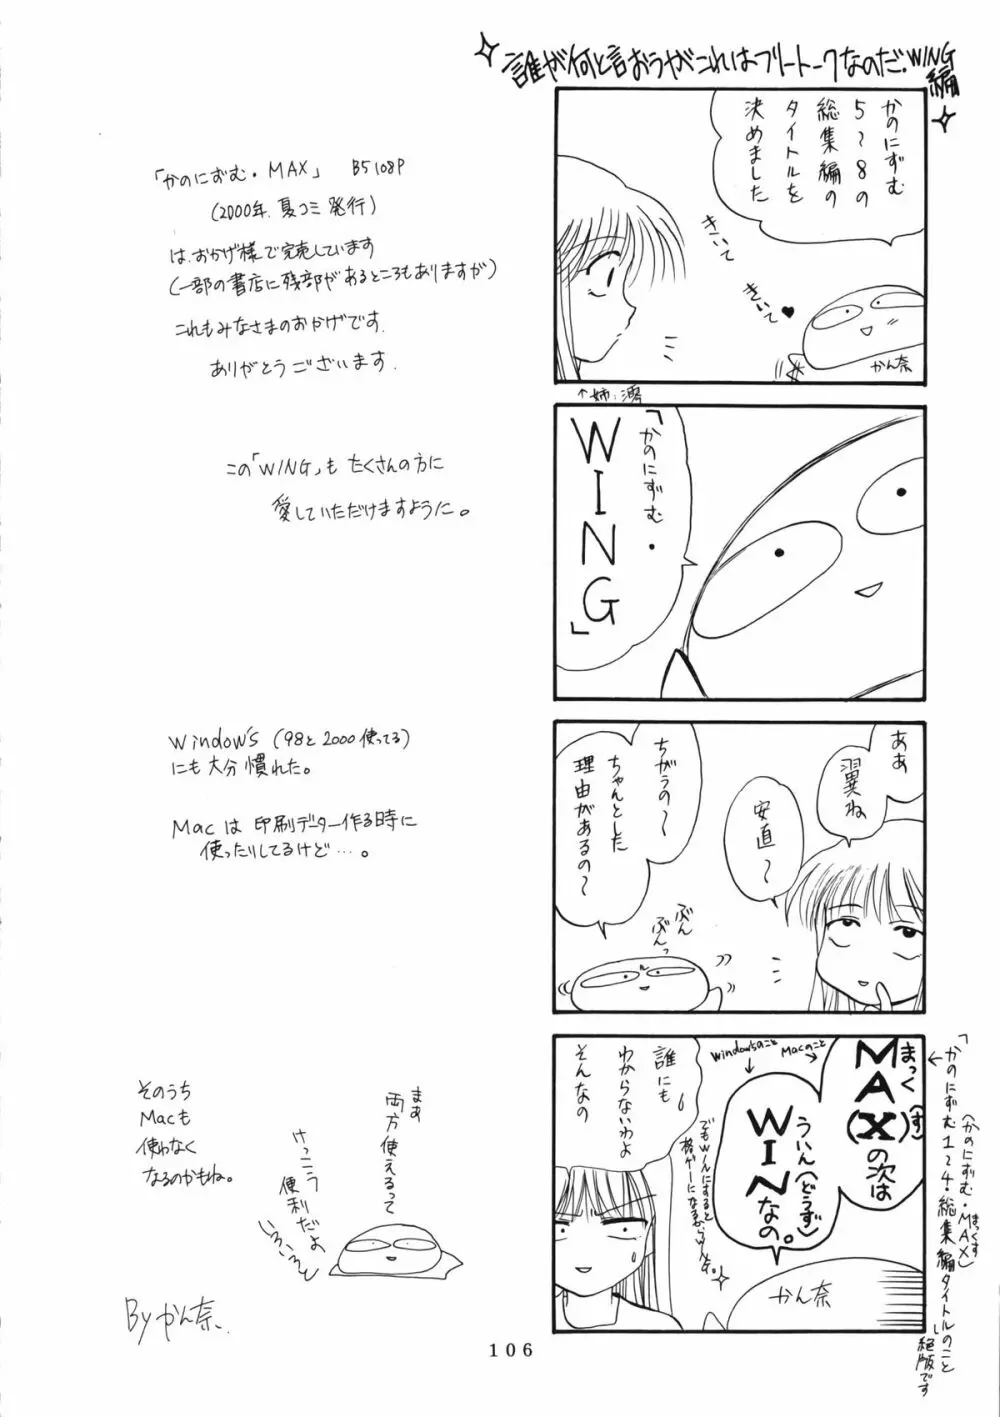 誰が何と言おうがこれはフリートークなのだ。WING編
かのにずむ
5～8の
総集編の
タイトルを
決めました
きいて
きいて♥
かん奈
↑姉:澪
「かのにずむ・
WING」
ああ
翼ね
安直～
ちがうの～
ちゃんとした
理由があるの～
ぶん
ぶんっ
まっく(す)
MA(X)の次は
Macのこと
ういん(どうず)
WINなの。
Window'sのこと
誰にも
わからないわよ
そんなの
でもWinにすると
かん奈
「かのにずむ1～4・総集編タイトルのこと
(かのにずむ・MAX)
まっくす
絶版です
「かのにずむ・MAX」 B5 108P
(2000年.夏コミ発行)
は.おかげ様で完売しています
(一部の書店に残部があるところもありますが)
これもみなさまのおかげです.
ありがとうございます.
この「WING」も たくさんの方に
愛していただけますように。
Window's (98と2000使ってる)
にも大分慣れた。
Macは 印刷データー作る時に
使ったりしてるけど…。
そのうち
Macも
使わなく
なるのかもね。
まあ
両方使えるって
けっこう
便利だよ
いろいろと
By かん奈.
106